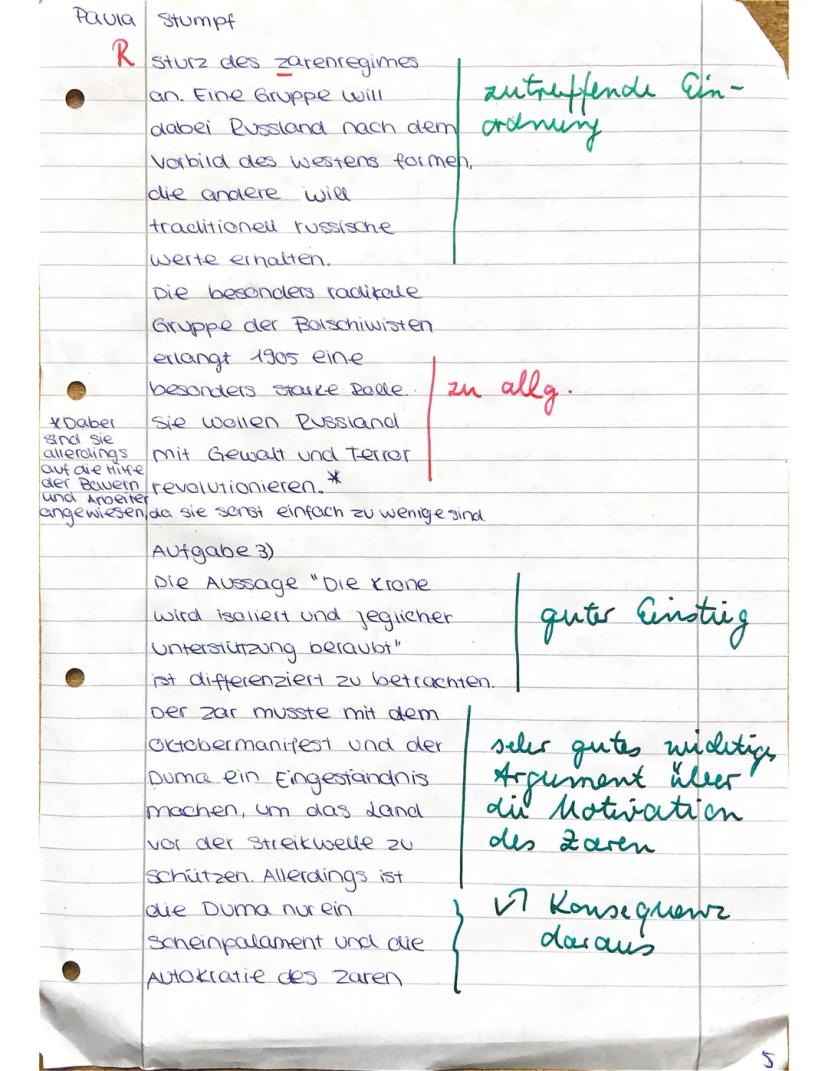 Paula Stumpf
R
sturz des zarenregimes
an. Eine Gruppe will
dabei Russland nach dem
Vorbild des Westens formen,
die andere will
traditionell russische
Werte erhalten.
zutreffende Ein-
ordnung
Die besonders radikale
Gruppe der Bolschiwisten
erlangt 1905 eine
besonders starke Rolle.
Sie wollen Russland
mit Gewalt und Terror
revolutionieren.*
zu allg.
*Dabei
sind sie
allerdings
auf die Hilfe
der Bauern
und Arbeiter
angewiesen, da sie sonst einfach zu wenige sind
Aufgabe 3)
Die Aussage "Die Krone
wird isoliert und jeglicher
Unterstützung beraubt"
ist differenziert zu betrachten.
guter Einstieg
Der Zar musste mit dem
Oktobermanifest und der
Duma ein Eingeständnis
machen, um das Land
vor der Streikwelle zu
schützen. Allerdings ist
die Duma nur ein
Scheinpalament und die
Autokratie des Zaren
sehr gutes wichtiges
Argument über
die Motivation
des Zaren
Konsequenz
daraus
5